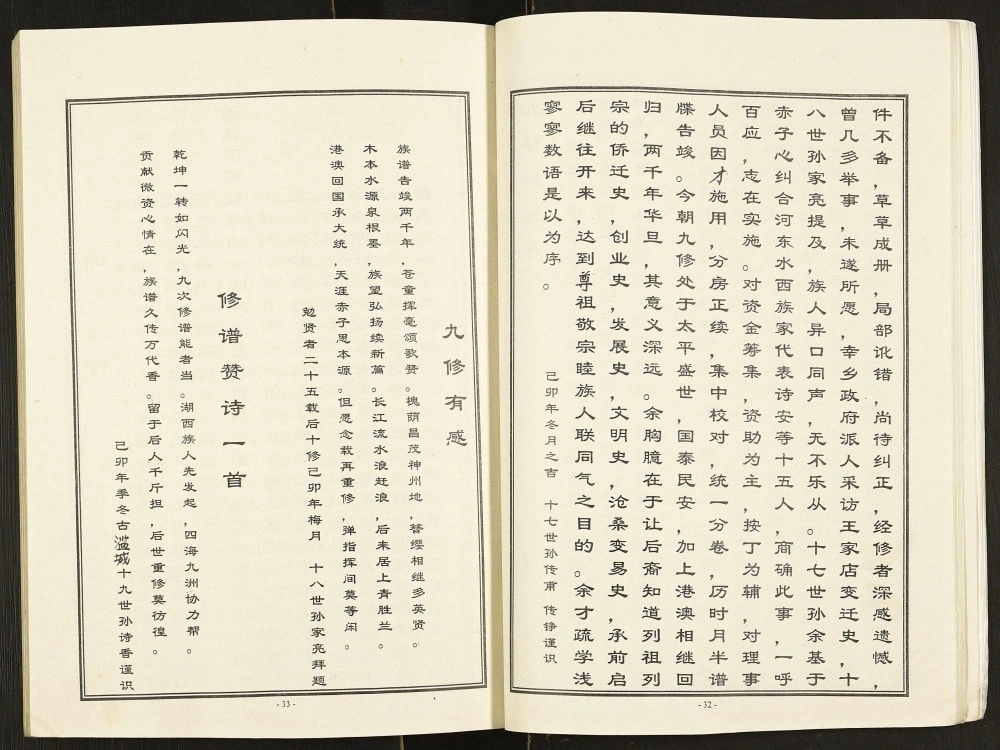 件不备，草草成册，局部讹错，尚待纠正，经修者深感遗憾，
曾几多举事，未遂所愿，幸乡政府派人采访王家店变迁史，十
八世孙家亮提及，族人异口同声，无不乐从。十七世孙余基于
赤子心纠合河东水西族家代表诗安等十五人，商确此事，一呼
百应，志在实施。对资金筹集，资助为主，按丁为辅，对理事
人员因才施用，分房正续，集中校对，统一分卷，历时月半谱
牒告竣。今朝九修处于太平盛世，国泰民安，加上港澳相继回
归，两千年华旦，其意义深远。余胸臆在于让后裔知道列祖列
宗的侨迁史，创业史，发展史，文明史，沧桑变易史，承前启
后继往开来，达到尊祖敬宗睦族人联同气之目的。余才疏学浅
寥寥数语是以为序。
己卯年冬月之吉 十七世孙传甫 传铮谨识
-32-
九修有感
族谱告竣两千年，苍童挥毫颂歌赞。槐荫昌茂神州地，簪缨相继多英贤。
木本水源泉根深，族望弘扬续新篇。长江流水浪赶浪，后来居上青胜兰。
港澳回国承大统，天涯赤子思本源。但愿念载再重修，弹指挥间莫等闲。
勉贤者二十五载后十修己卯年梅月 十八世孙家亮拜题
修谱赞诗一首
乾坤一转如闪光，九次修谱能者当。湖西族人先发起，四海九洲协力帮。
贡献微资心情在，族谱久传万代香。留于后人千斤担，后世重修莫彷徨。
己卯年季冬古滥城十九世孙诗香谨识
-33-